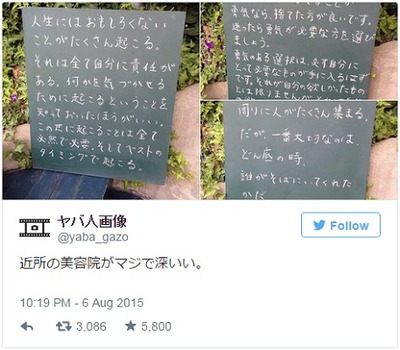 人生にはおもしろくない
ことがたくさん起こる。
それは全て自分に責任が
ある。何かを気づかせる
ために起こるということを
知っておいたほうがいい。
この世に起こることは全て
必然で必要、そしてベストの
タイミングで起こる。
勇気なら、捨てた方が良いです。
迷ったら勇気が必要な方を選び
ましょう。
勇気ある選択は、必ず自分に
とって必要なものが手に入るはず
です。それが自分の欲しかったもの
とは限りませんが
周りに人がたくさん集まる。
だが、一番大切なのは、
どん底の時、
誰がそばにいてくれた
かだ
ヤバ人画像
@yaba_gazo
Follow
近所の美容院がマジで深いい。
10:19 PM - 6 Aug 2015
3,086
5,800